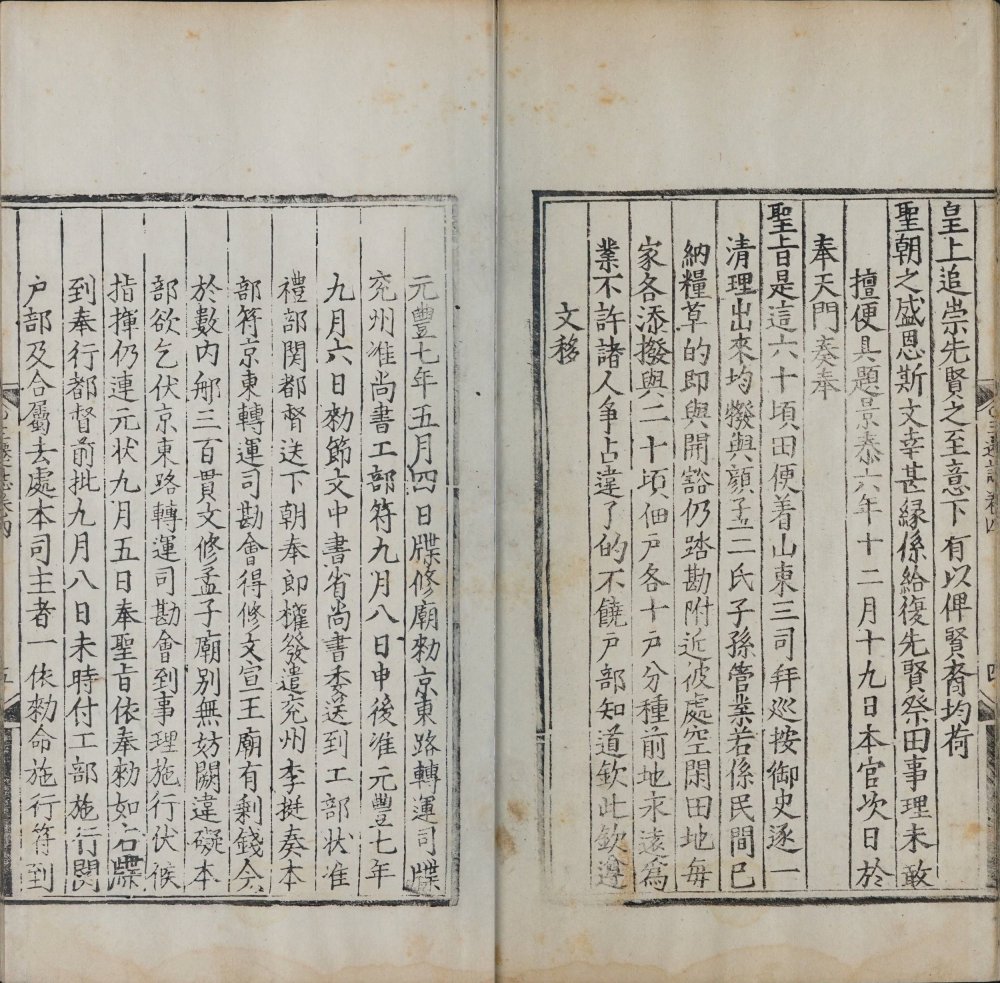 皇上追崇先賢之至意下有以俾賢裔均荷
聖朝之盛恩斯文幸甚緣係給復先賢祭田事理未敢
擅便具題景泰六年十二月十九日本官次日於
奉天門奏奉
聖旨是這六十頃田便着山東三司拜巡按御史逐一
清理出來均撥與顏孟二氏子孫管業若係民間已
納糧草的即與開豁仍踏勘附近彼處空閑田地每
家各添撥與二十頃佃戶各十戶分種前地永遠爲
業不許諸人爭占違了的不饒戶部知道欽此欽遵
文移
四
元豐七年五月四日牒修廟勑京東路轉運司牒
兖州准尚書工部符九月八日申後准元豐七年
九月六日勑節文中書省尚書委送到工部狀准
禮部関都督送下朝奉郎權發遣兖州李挺奏本
部符京東轉運司勘會得修文宣王廟有剩錢今
於數内那三百貫文修孟子廟別無妨闕違礙本
部欲乞伏京東路轉運司勘會到事理施行伏候
指揮仍連元状九月五日奉聖旨依奉勑如右牒
到奉行都督前批九月八日未時付工部施行関
戶部及合屬去處本司主者一依勑命施行符到
五